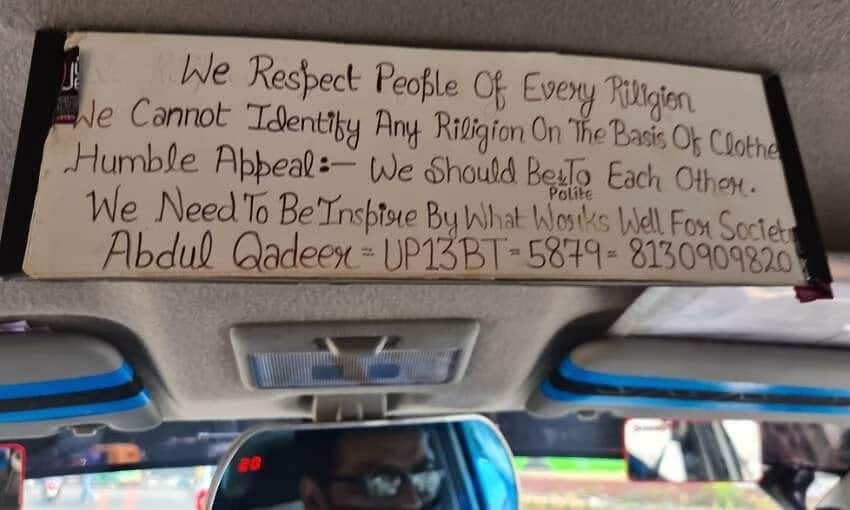 We Respect People Of Every Riligion
We Cannot Identify Any Riligion On The Basis Of Clothe
Humble Appeal:- We Should Be To Each Other.
Polite
We Need To Be Inspire By What Works Well For Society
Abdul Qadeer = UP13BT = 5879 = 8130909820
20